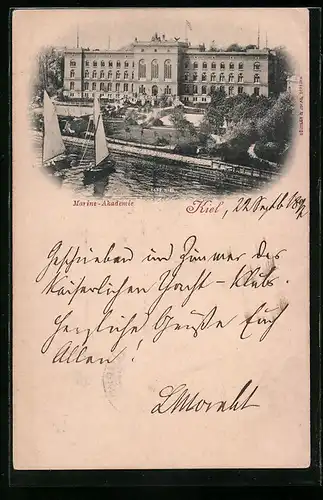 Marine-Akademie
Kiel, 22 Septb 1897
Geschrieben im Zimmer des
Kaiserlichen Yacht-Klub.
Herzliche Grüße Euch
Allen!